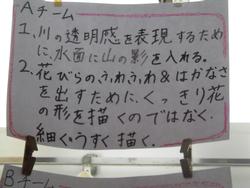 Aチーム
1、川の透明感を表現するため
に、水面に山の影を入れる。
2、花びらのふわふわ&はかなさ
を出すために、くっきり花
の形を描くのではなく、
細くうすく描く。
Bチーム